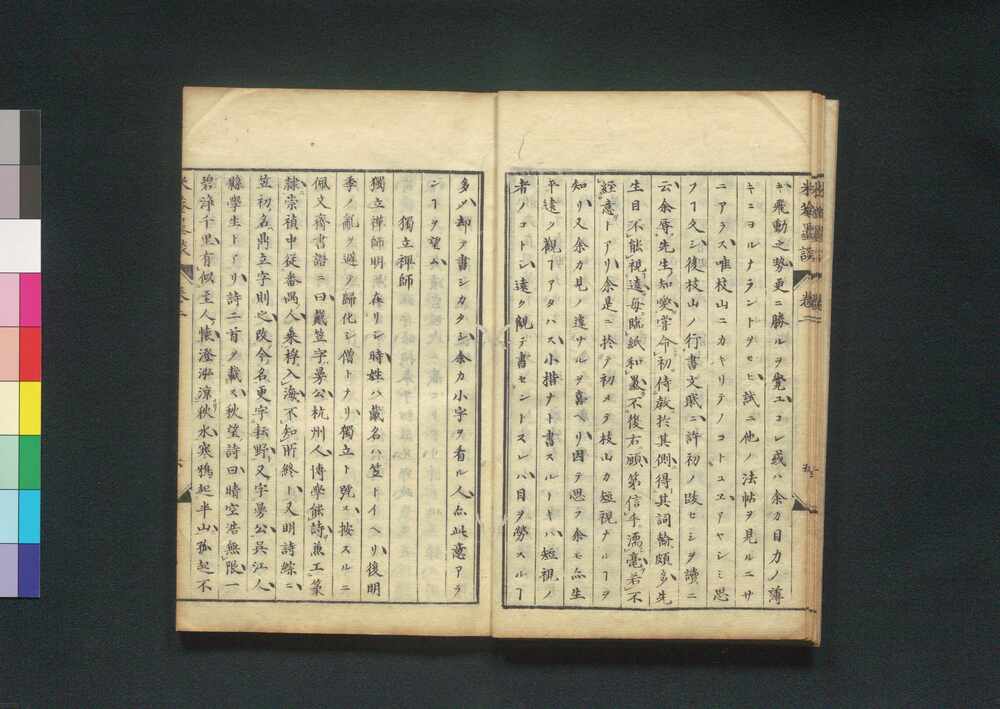 米菴墨談
キ飛動之勢更ニ勝ルヲ覺ユコレ或ハ余カ目力ノ薄
キニヨルナラントタヒヒ試ニ他ノ法帖ヲ見ルニサ
ニアラス唯枝山ニカキリテノコトユヱアヤシミ思
フヿ久シ後枝山ノ行書文賦ニ許初ノ跋セシヲ讀ニ
云余辱先生知愛嘗命初侍教於其側得其詞翰頗多先
生目不能視遠毎臨紙和墨不復右顧第信手濡毫若不
經意トアリ余是ニ於テ初メテ枝山カ短視ナルヿヲ
知リ又余カ見ノ違サルヲ喜ヘリ因テ思フ余モ亦生
平遠ク觀ヿアタハス小楷ナト書スルトキハ短視ノ
者ノコトシ遠ク觀テ書セントスレハ目ヲ勞スルヿ
多ク却テ書シカタシ余カ小字ヲ看ル人亦此意アラ
ンヿヲ望ム
獨立禅師
獨立禅師明ニ在リシ時姓ハ戴名ハ笠トイヘリ後明
季ノ亂ヲ避ケ歸化シ僧トナリ獨立ト號ス按スルニ
佩文齊書譜ニ曰戴笠字曼公杭州人博學能詩兼工篆
隸崇禎中從番禺人乗桴入海不知所終ト又明詩綜ニ
笠初名鼎立字則之改今名更字耘野又字曼公呉江人
縣學生トアリ詩二首ヲ載ス秋望詩曰晴空浩無限一
碧淨千里有似至人懐澄泓涼秋水寒鴉起半山孤起不